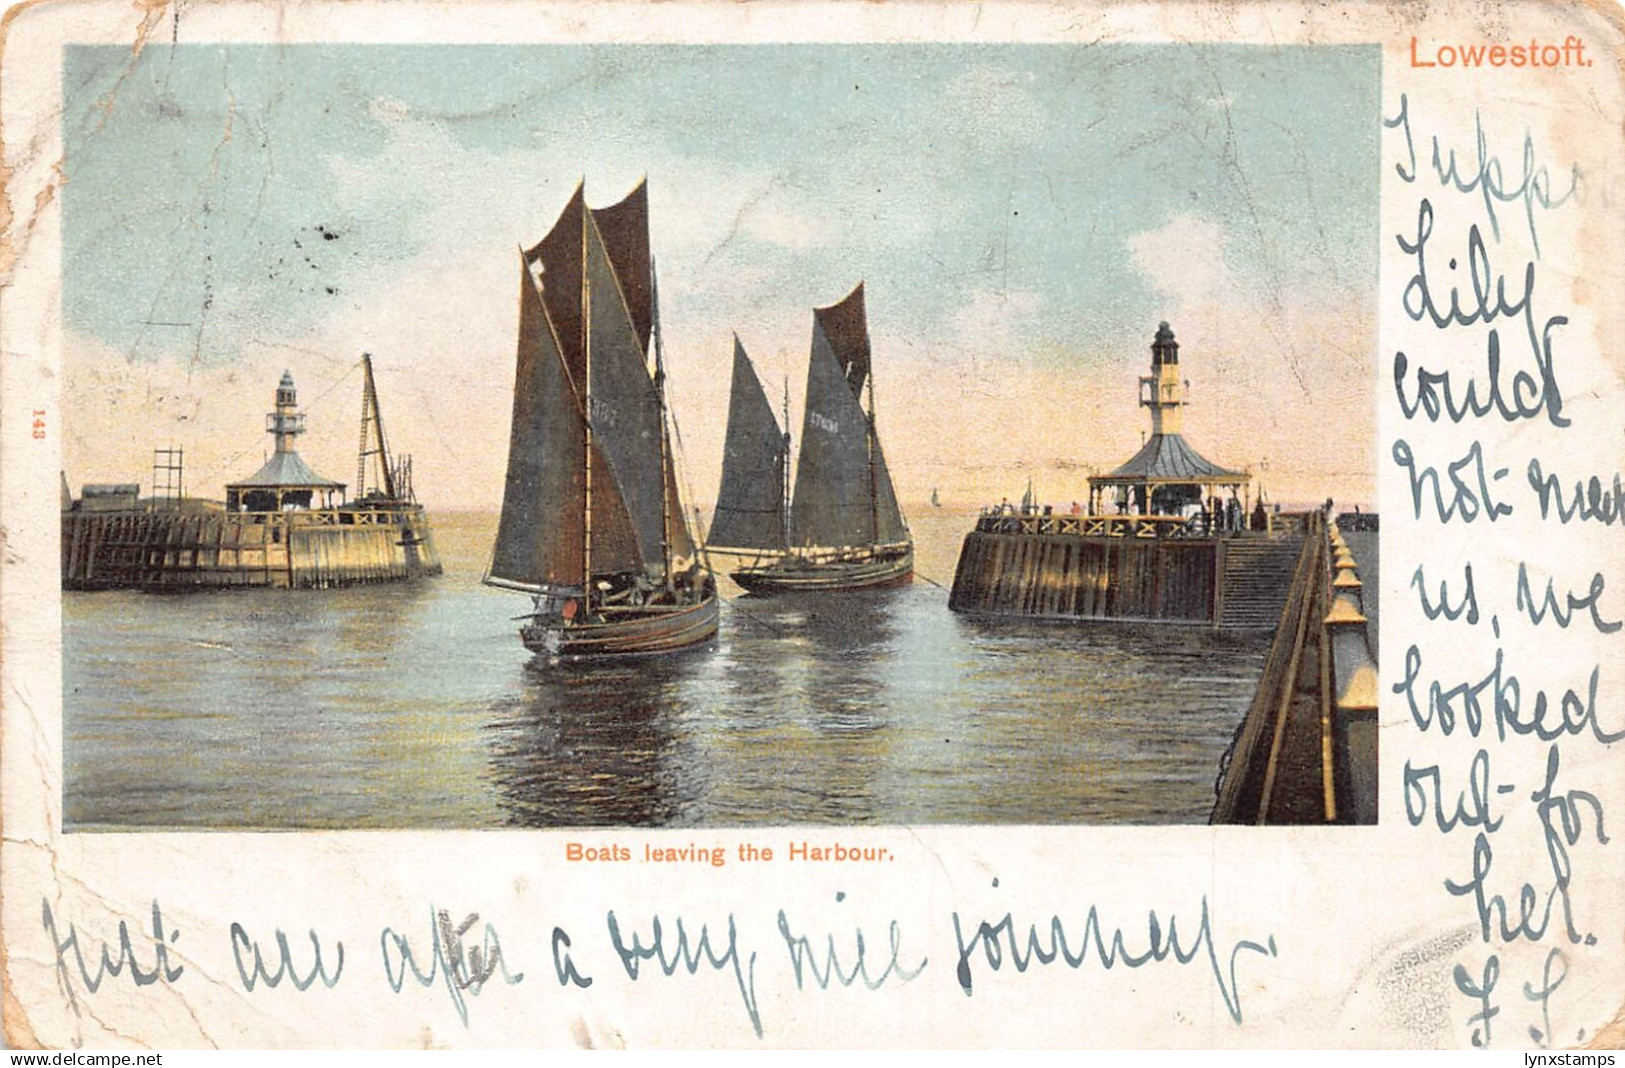 Lowestoft.
Suppose
Lily
could
not meet
us, we
looked
out for
her.
F S.
143
LT636
Boats leaving the Harbour.
Just arr after a very nice journey.
delcampe.net
lynxstamps